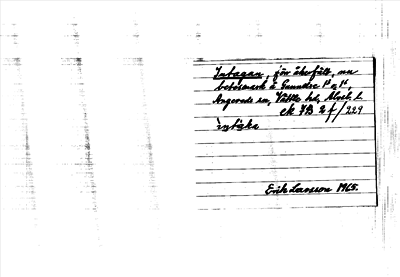 Intagan, gör åkerfält, nu
betesmark å Gunnäse 1² o 1⁴,
Angereds sn, Vättle hd, Älvsb. l.
ek JB 2 f/229
intäka
Erik Larsson 1965.